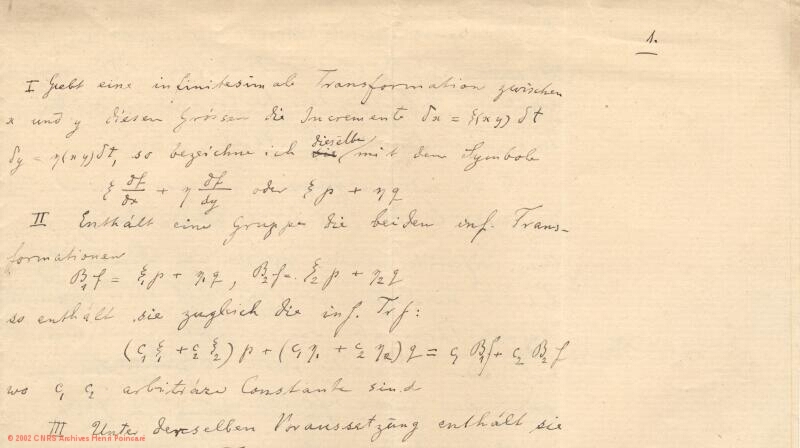 1.
I Giebt eine infinitesimale Transformation zwischen
x und y diesen Grössen die Incremente δx = ξ(xy) δt
δy = η(xy) δt, so bezeichne ich die dieselbe mit dem Symbole
ξ df/dx + η df/dy oder ξ p + η q
II Enthält eine Gruppe die beiden inf. Trans-
formationen
B₁f = ξ₁ p + η₁ q, B₂f = ξ₂ p + η₂ q
so enthält sie zugleich die inf. Trf:
(c₁ ξ₁ + c₂ ξ₂) p + (c₁ η₁ + c₂ η₂) q = c₁ B₁f + c₂ B₂f
wo c₁ c₂ arbiträre Constante sind
III Unter derselben Voraussetzung enthält sie
© 2002 CNRS Archives Henri Poincaré